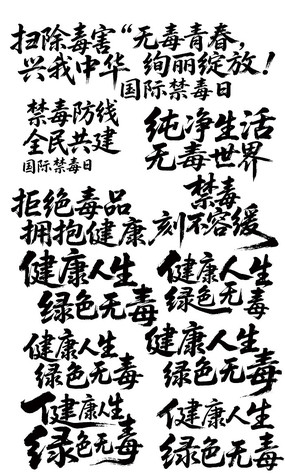 扫除毒害
兴我中华
“无毒青春,
绚丽绽放!
国际禁毒日
禁毒防线
全民共建
国际禁毒日
纯净生活
无毒世界
拒绝毒品
拥抱健康
禁毒
刻不容缓
健康人生
绿色无毒
健康人生
绿色无毒
健康人生
绿色无毒
健康人生
绿色无毒
健康人生
绿色无毒
健康人生
绿色无毒